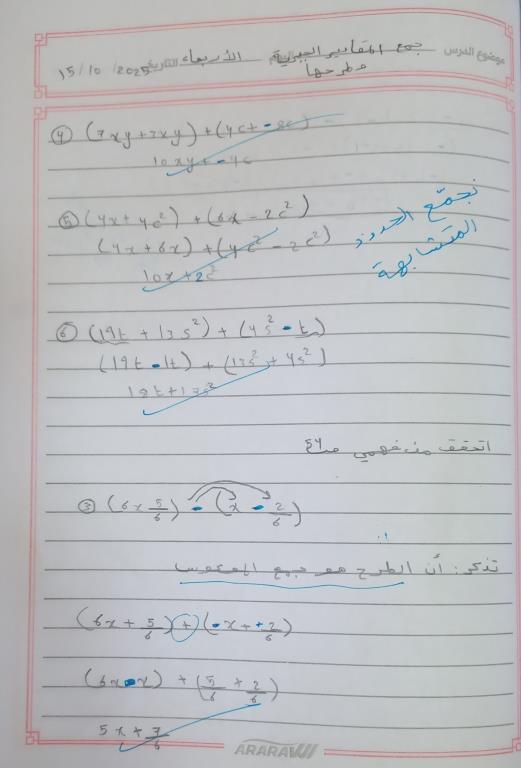 موضوع الدرس جمع المقادير الجبرية اليوم الأربعاء التاريخ 15/10/2025
وطرحها
④ (7xy+3xy)+(4c+-8c)
10xy+-4c
⑤ (4x+4c²)+(6x-2c²)
نجمّع الحدود
(4x+6x)+(4c²-2c²)
المتشابهة
10x+2c²
⑥ (19t+13s²)+(4s²-t)
(19t-1t)+(13s²+4s²)
18t+17s²
اتحقق من فهمي ص٤٦
③ (6x 5/6)-(x-2/6)
تذكر: أن الطرح هو جمع المعكوس
(6x+5/6)+(-x++2/6)
(6x-x)+(5/6+2/6)
5x+7/6
ARARAWI